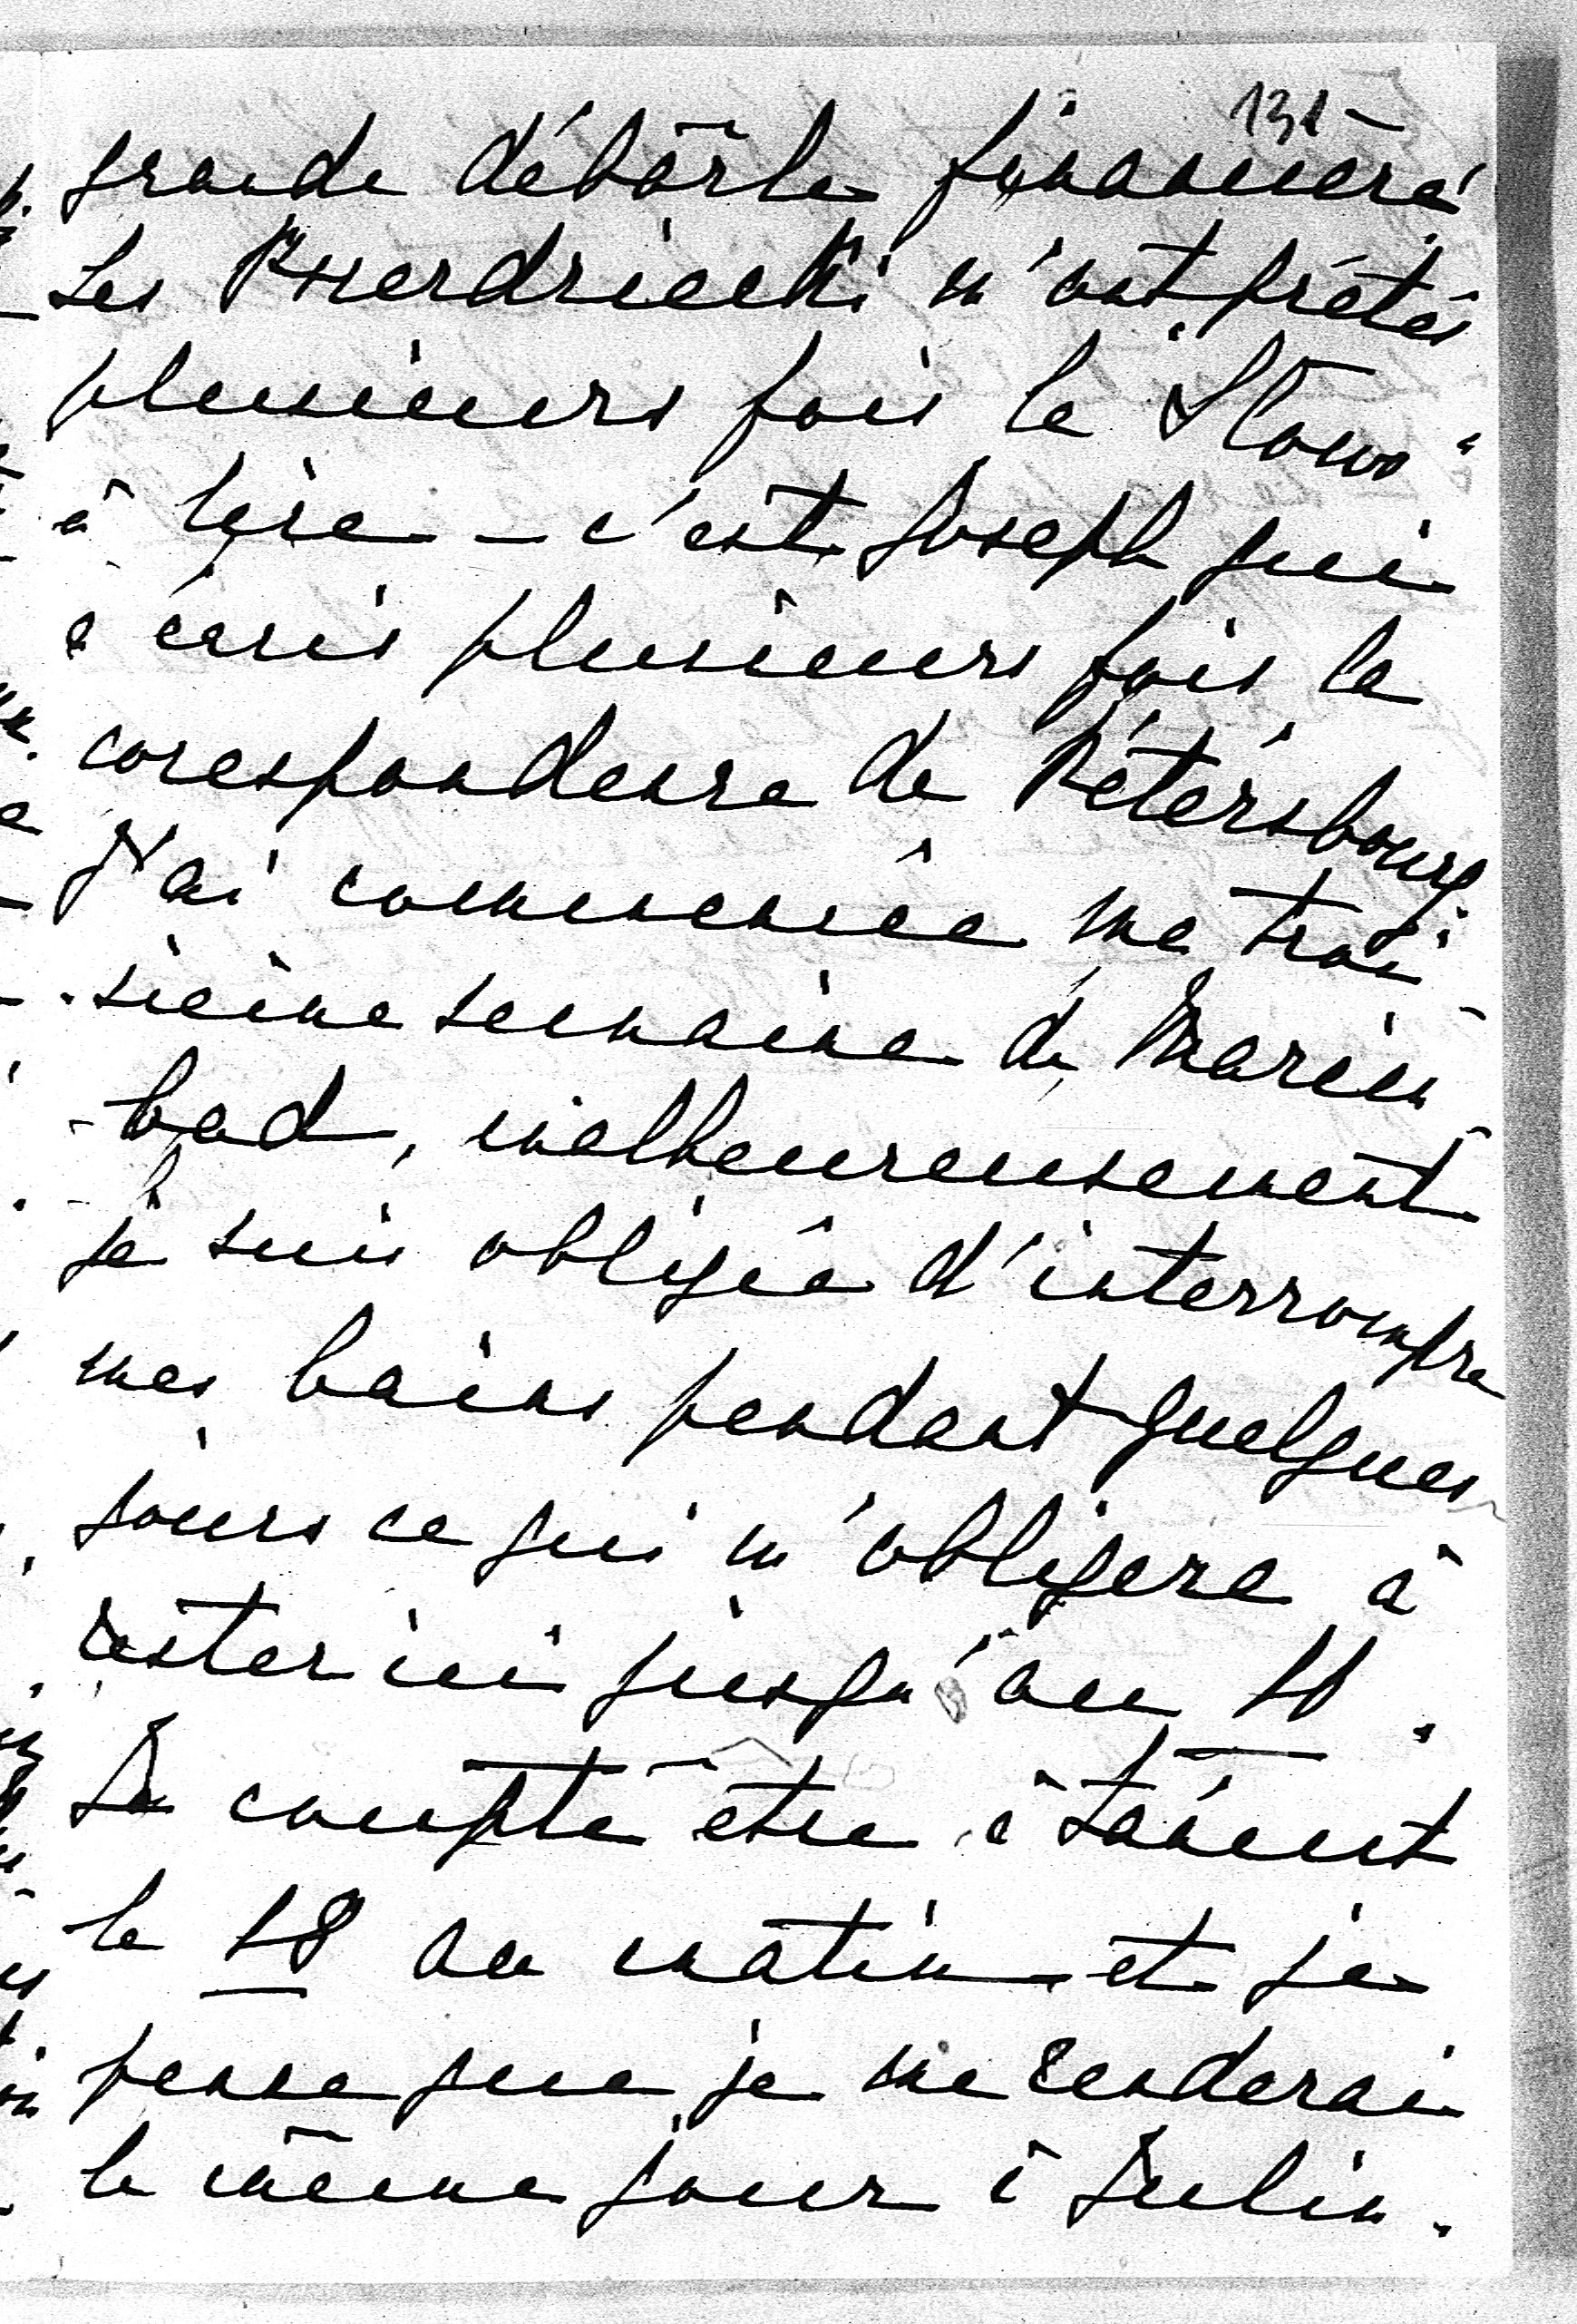 131
grande débâcle financière
Les m'ont prêtés
plusieurs fois le "Słowo"
à lire – c'est Joseph qui
a écris plusieurs fois la
corespondence de Pétersbourg.
J'ai commencée ma troi-
-sieime semaine de Marien-
-bad, malheureusement
je suis obligée d'interrompre
mes bains pendant quelques
jours ce qui m'obligera à
rester ici jusqu'au
Je compte être à
le 18 au matin et je
pense que je me renderai
le même jour à Julin.